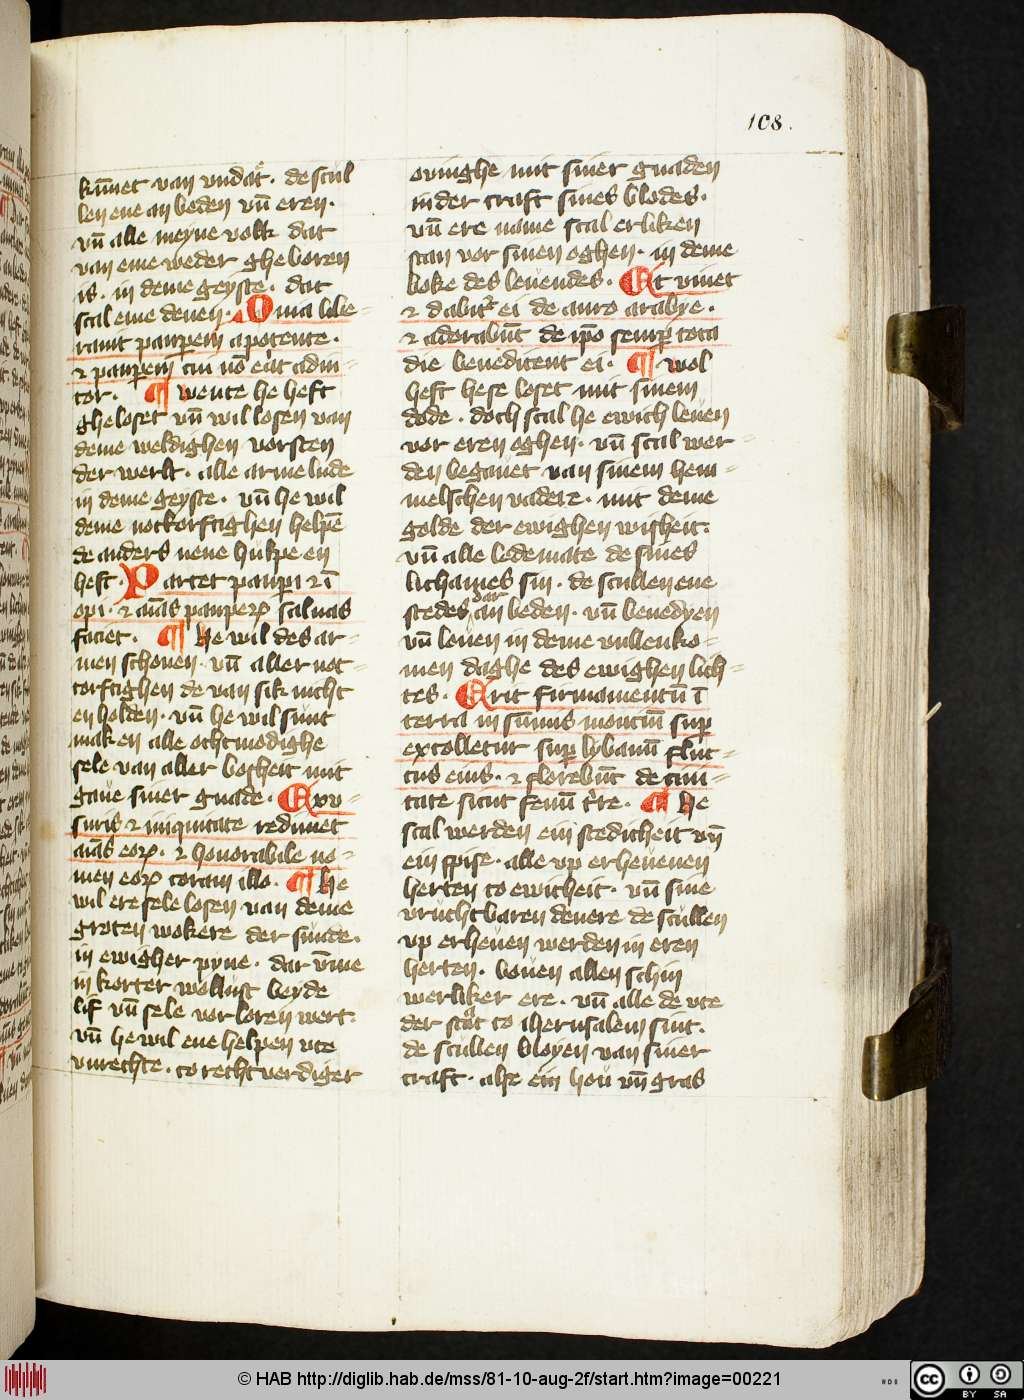 108.
kum̄et van vndat͛. de scul
len ene an beden vn̄ eren.
vn̄ alle meyne volk dat
van eme weder ghe boren
is. in deme geyste. dat
scal eme denen. Quia libe-
rauit paup̱em a potente.
⁊ paup̱em cui nō erat adiu-
tor. ¶ wente he heft
ghe loset vn̄ wil losen van
deme weldighen vorsten
der werlt. alle arme lude
in deme geyste. vn̄ he wil
deme notkorftighen helpē
de anders nene hulpe en
heft. Parcet paup̱i ⁊ ī
opi. ⁊ aīas paup̱erꝝ saluas
faciet. ¶ he wil des ar-
men schonen. vn̄ aller not-
torftighen de van sik nicht
en holden. vn̄ he wil sunt
maken alle othmodighe
sele van aller bosheit mit
gaue siner gnade. Ex v-
suris ⁊ iniquitate redimet
aīas eorꝝ. ⁊ honorabile no-
men eorꝝ coram illo. ¶ he
wil ere sele losen van deme
groten wokere der sunde.
in ewigher pyne. dar v̄me
in korter wollust beyde
lif vn̄ sele vorloren wert.
vn̄ he wil ene helpen vte
vnrechte. to rechtverdiger
ouinghe mit siner gnaden
in der craft sines blodes.
vn̄ ere name scal erliken
stan vor sinen oghen. in deme
boke des leuendes. Et viuet
⁊ dabit͛ ei de auro arabye.
⁊ adorabūt de ip̄o semp̱ tota
die benedicent ei. ¶ wol
heft he se loset mit sinem
dode. doch scal he ewich leuen
vor eren oghen. vn̄ scal wer-
den begauet van sinem hem-
melschen vadere. mit deme
golde der ewighen wisheit.
vn̄ alle ledemate de sines
lichames sin. de scullen ene
stedes dar
an beden. vn̄ benedyen
vn̄ leuen in deme vullenko-
men daghe des ewighen lich-
tes. Erit firmamentū ī
terra in sūmis monciū sup̱
extolletur sup̱ lybanū fruc-
tus eius. ⁊ florebūt de ciui-
tate sicut fenū t͛re. ¶ He
scal werden ein stedicheit vn̄
ein spise. alle vp erheuenen
herten to ewicheit. vn̄ sine
vruchtbaren denere de scullen
vp erheuen werden in eren
herten. bouen allen schin
werliker ere. vn̄ alle de vte
der stat to iherusalem sint.
de scullen bloyen van siner
craft. alze ein hou vn̄ gras
© HAB http://diglib.hab.de/mss/81-10-aug-2f/start.htm?image=00221
HAB
cc BY SA